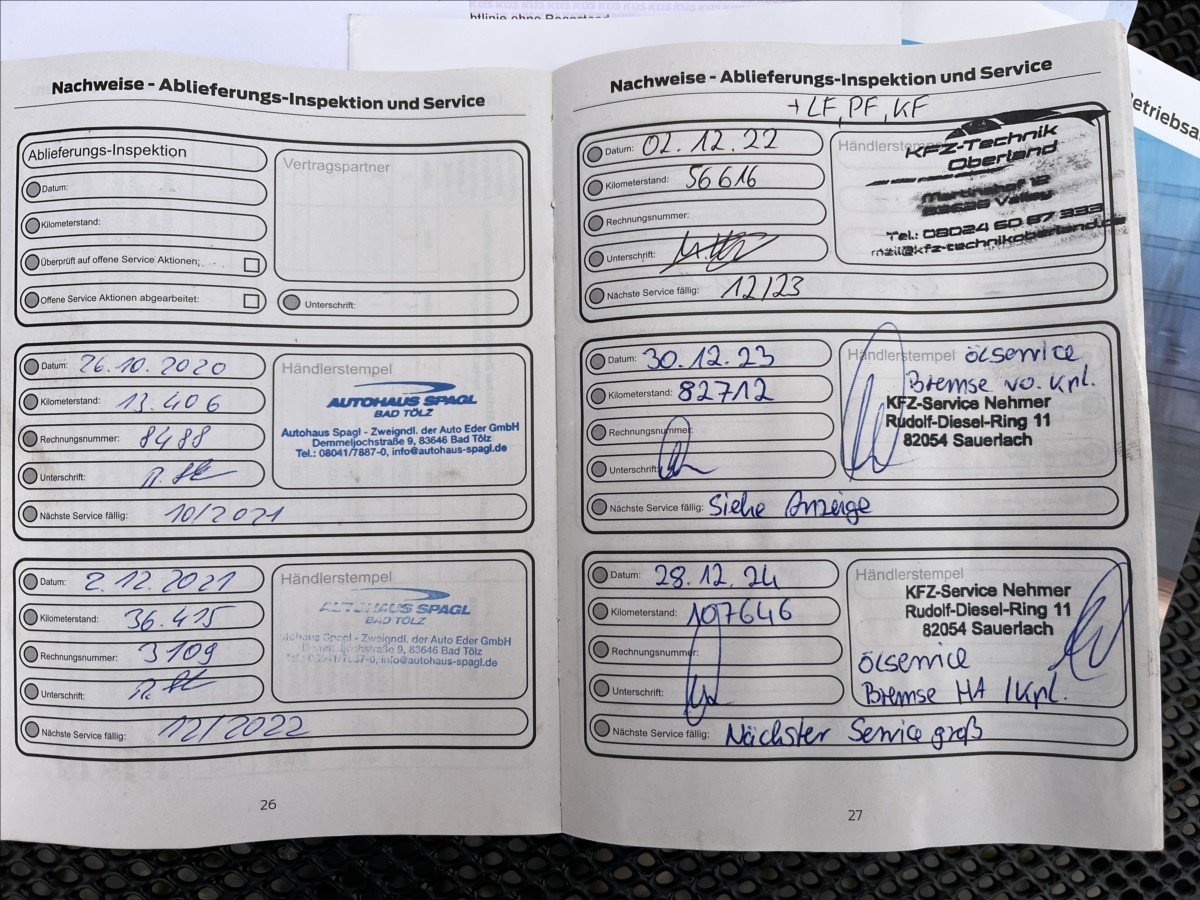 KUS KUS KUS KUS KUS KUS KUS KUS KUS
Betriebsa
Nachweise - Ablieferungs-Inspektion und Service
Ablieferungs-Inspektion
Datum:
Kilometerstand:
Überprüft auf offene Service Aktionen:
Offene Service Aktionen abgearbeitet:
Vertragspartner
Unterschrift:
Datum: 26.10.2020
Kilometerstand: 13.406
Rechnungsnummer: 8488
Unterschrift:
Nächste Service fällig: 10/2021
Händlerstempel
AUTOHAUS SPAGL
BAD TÖLZ
Autohaus Spagl - Zweigndl. der Auto Eder GmbH
Demmeljochstraße 9, 83646 Bad Tölz
Tel.: 08041/7887-0, info@autohaus-spagl.de
Datum: 2.12.2021
Kilometerstand: 36.415
Rechnungsnummer: 3109
Unterschrift:
Nächste Service fällig: 12/2022
Händlerstempel
AUTOHAUS SPAGL
BAD TÖLZ
Autohaus Spagl - Zweigndl. der Auto Eder GmbH
Demmeljochstraße 9, 83646 Bad Tölz
Tel.: 08041/7887-0, info@autohaus-spagl.de
26
Nachweise - Ablieferungs-Inspektion und Service
+LF, PF, KF
Datum: 02.12.22
Kilometerstand: 56616
Rechnungsnummer:
Unterschrift:
Nächste Service fällig: 12/23
Händlerstempel
KFZ-Technik
Oberland
Valley
Tel.: 08024 60 87 388
mail@kfz-technikoberland.de
Datum: 30.12.23
Kilometerstand: 82712
Rechnungsnummer:
Unterschrift:
Nächste Service fällig: Siehe Anzeige
Händlerstempel ölservice
Bremse vo. Kpl.
KFZ-Service Nehmer
Rudolf-Diesel-Ring 11
82054 Sauerlach
Datum: 28.12.24
Kilometerstand: 107646
Rechnungsnummer:
Unterschrift:
Nächste Service fällig: Nächster Service groß
Händlerstempel
KFZ-Service Nehmer
Rudolf-Diesel-Ring 11
82054 Sauerlach
ölservice
Bremse HA /Kpl.
27